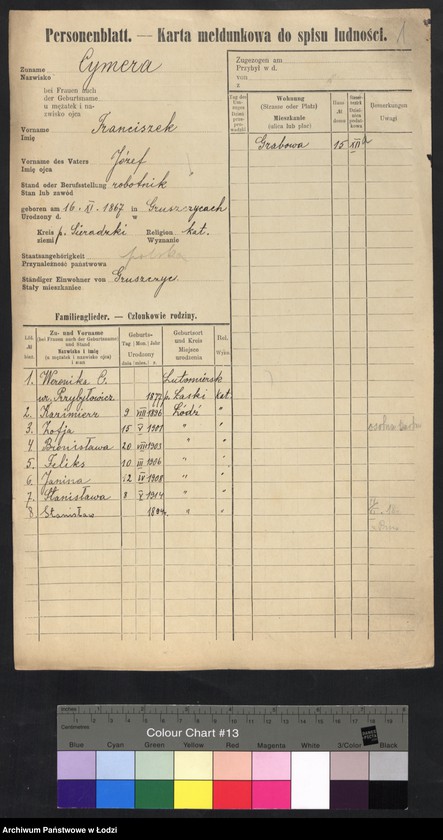 Personenblatt. — Karta meldunkowa do spisu ludności.
1
Zuname
Nazwisko
Cymera
bei Frauen auch
der Geburtsname
u mężatek i na-
zwisko ojca
Vorname
Imię
Franciszek
Vorname des Vaters
Imię ojca
Józef
Stand oder Berufsstellung
Stan lub zawód
robotnik
geboren am 16. XI. 1867 in Gruszczycach
Urodzony d. w
Kreis p. Sieradzki Religion kat.
ziemi Wyznanie
Staatsangehörigkeit
Przynależność państwowa
polska
Ständiger Einwohner von
Stały mieszkaniec
Gruszczyc
Zugezogen am
Przybył w d.
von
z
Wohnung
(Strasse oder Platz)
Mieszkanie
(ulica lub plac)
Haus-
№
domu
Bemerkungen
Uwagi
Grabowa 15 XII
Familienglieder. — Członkowie rodziny.
Zu- und Vorname
(bei Frauen auch der Geburtsname)
und Stand
Nazwisko i imię
(u mężatek i nazwisko ojca)
i stan
Geburts-
Tag Mon. Jahr
Urodzony
dnia mies. r.
Geburtsort
und Kreis
Miejsce
urodzenia
Rel.
Wyzn.
1. Weronika C. Lutomiersk
ur. Przybyłowicz 1877 p. Łaski kat.
2. Kazimierz 9 VIII 1896 Łódź "
3. Zofja 15 V 1901 " "
4. Bronisława 20 VIII 1903 " "
5. Feliks 10 III 1906 " "
6. Janina 12 IV 1908 " "
7. Stanisława 8 V 1914 " "
8. Stanisław " "
Inches 1 2 3 4 5 6 7 8
Centimetres 1 2 3 4 5 6 7 8 9 10 11 12 13 14 15 16 17 18 19
Colour Chart #13
Blue Cyan Green Yellow Red Magenta White 3/Color Black
Archiwum Państwowe w Łodzi